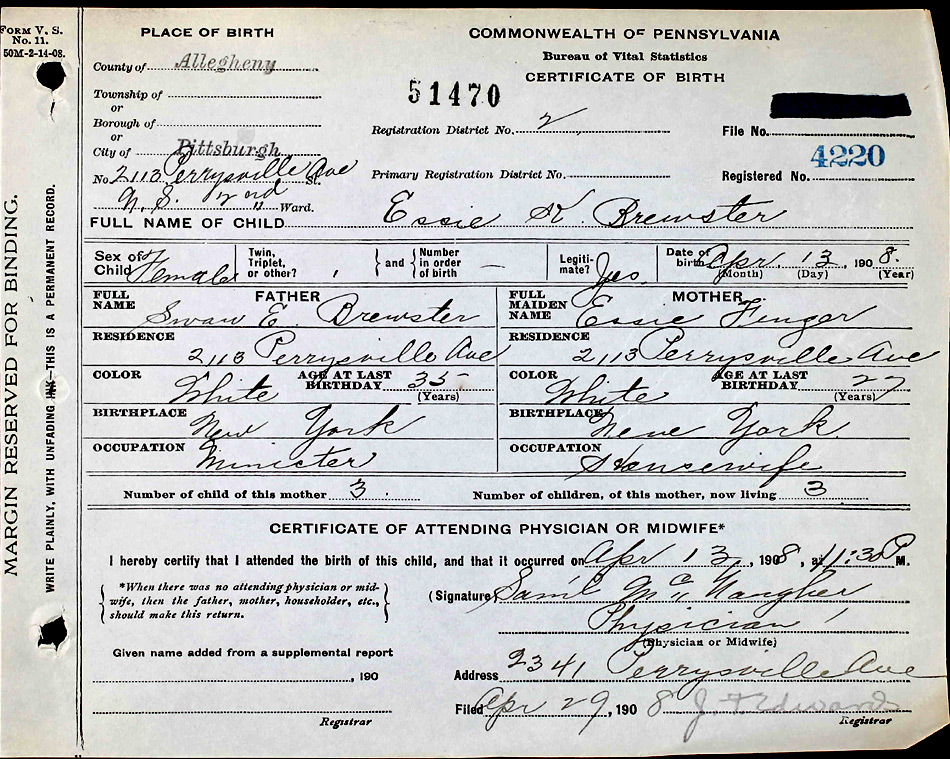 FORM V. S.
No. 11.
50M-2-14-08.
MARGIN RESERVED FOR BINDING.
WRITE PLAINLY, WITH UNFADING INK—THIS IS A PERMANENT RECORD.
PLACE OF BIRTH
COMMONWEALTH OF PENNSYLVANIA
Bureau of Vital Statistics
CERTIFICATE OF BIRTH
County of Allegheny
Township of
or
Borough of
or
City of Pittsburgh
No. 2113 Perrysville Ave St.
N. S. 2nd " Ward.
51470
Registration District No. 2
Primary Registration District No.
File No.
4220
Registered No.
FULL NAME OF CHILD Essie K. Brewster
Sex of Child Female
Twin, Triplet, or other?
and
Number in order of birth —
Legitimate? Yes
Date of birth Apr. 13, 1908.
(Month) (Day) (Year)
FATHER
FULL NAME Swan E. Brewster
RESIDENCE 2113 Perrysville Ave
COLOR White
AGE AT LAST BIRTHDAY 35
(Years)
BIRTHPLACE New York
OCCUPATION Minister
MOTHER
FULL MAIDEN NAME Essie Finger
RESIDENCE 2113 Perrysville Ave
COLOR White
AGE AT LAST BIRTHDAY 27
(Years)
BIRTHPLACE New York
OCCUPATION Housewife
Number of child of this mother 3. Number of children, of this mother, now living 3
CERTIFICATE OF ATTENDING PHYSICIAN OR MIDWIFE*
I hereby certify that I attended the birth of this child, and that it occurred on Apr 13, 1908, at 11:30 P M.
*When there was no attending physician or mid-
wife, then the father, mother, householder, etc.,
should make this return.
(Signature) Saml McNaugher
Physician
(Physician or Midwife)
Given name added from a supplemental report
, 190
Registrar
Address 2341 Perrysville Ave
Filed Apr 29, 1908 J. F. Edwards
Registrar